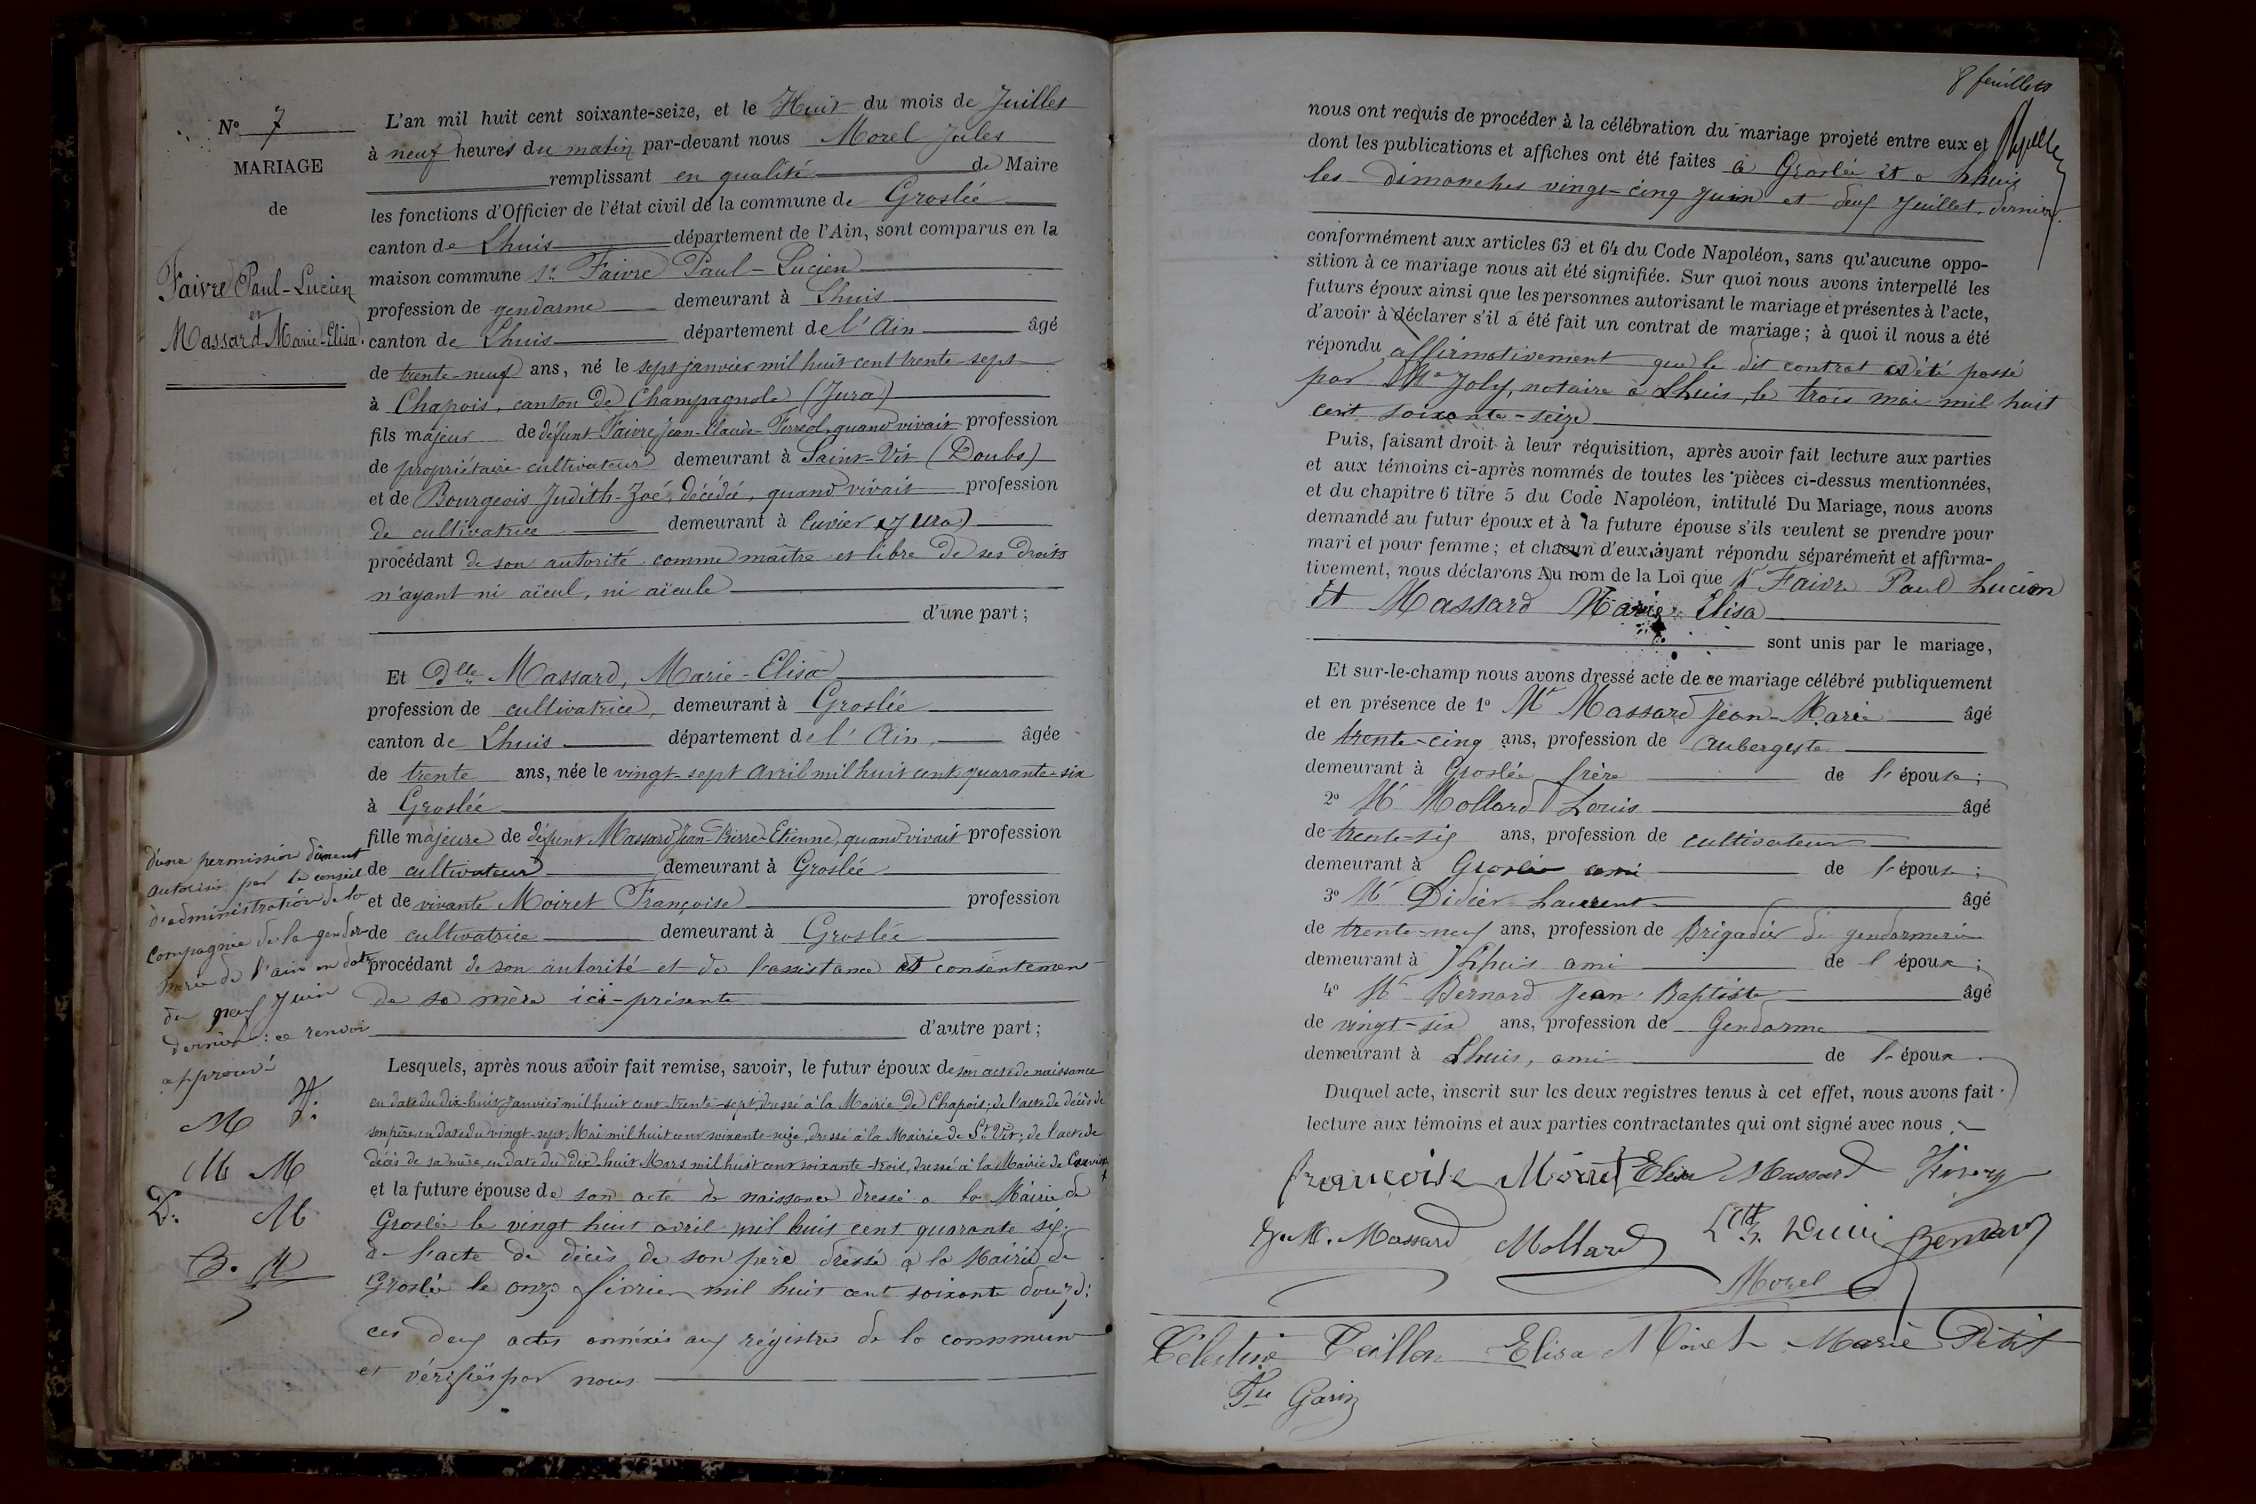 N° 7
MARIAGE
de
Faivre Paul-Lucien
et
Massard Marie-Elisa.
L'an mil huit cent soixante-seize, et le Huit du mois de Juillet
à neuf heures du matin par-devant nous Morel Jules
remplissant en qualité de Maire
les fonctions d'Officier de l'état civil de la commune de Groslée
canton de Lhuis département de l'Ain, sont comparus en la
maison commune Sr Faivre Paul-Lucien
profession de gendarme demeurant à Lhuis
canton de Lhuis département de l'Ain âgé
de trente-neuf ans, né le sept janvier mil huit cent trente-sept
à Chapois, canton de Champagnole (Jura)
fils majeur de défunt Faivre Jean-Claude-Ferréol, quand vivait profession
de propriétaire cultivateur demeurant à Saint-Vit (Doubs)
et de Bourgeois Judith-Zoé, décédée, quand vivait profession
de cultivatrice demeurant à Cuvier (Jura)
procédant de son autorité comme maître et libre de ses droits
n'ayant ni aïeul, ni aïeule
d'une part;
Et Dlle Massard, Marie-Elisa
profession de cultivatrice, demeurant à Groslée
canton de Lhuis département de l'Ain, âgée
de trente ans, née le vingt-sept avril mil huit cent quarante-six
à Groslée
fille majeure de défunt Massard Jean-Pierre-Etienne, quand vivait profession
de cultivateur demeurant à Groslée
et de vivante Moiret Françoise profession
de cultivatrice demeurant à Groslée
procédant de son autorité et de l'assistance et consentement
de sa mère ici-présente
d'autre part;
Lesquels, après nous avoir fait remise, savoir, le futur époux de son acte de naissance
en date du dix-huit janvier mil huit cent trente-sept, dressé à la Mairie de Chapois; de l'acte de décès de
son père, en date du vingt-sept Mai mil huit cent soixante-seize, dressé à la Mairie de St Vit; de l'acte de
décès de sa mère, en date du dix-huit Mars mil huit cent soixante-trois, dressé à la Mairie de Cuvier
et la future épouse de son acte de naissance dressé à la Mairie de
Groslée le vingt huit avril mil huit cent quarante six;
de l'acte de décès de son père dressé à la Mairie de
Groslée le onze février mil huit cent soixante douze;
ces deux actes annéxés aux régistres de la commune
et vérifiés par nous
d'une permission dûment
autorisée par le conseil
d'administration de la
compagnie de la gendar-
merie de l'ain en date
du neuf Juin
dernier: ce renvoi
approuvé
M F.
M M
D. M
B. M
8 feuillets
nous ont requis de procéder à la célébration du mariage projeté entre eux et
dont les publications et affiches ont été faites à Groslée et à Lhuis
les dimanches vingt-cinq Juin et deux Juillet derniers.
conformément aux articles 63 et 64 du Code Napoléon, sans qu'aucune oppo-
sition à ce mariage nous ait été signifiée. Sur quoi nous avons interpellé les
futurs époux ainsi que les personnes autorisant le mariage et présentes à l'acte,
d'avoir à déclarer s'il a été fait un contrat de mariage; à quoi il nous a été
répondu affirmativement que le dit contrat a été passé
par Me Joly, notaire à Lhuis, le trois mai mil huit
cent soixante-seize
Puis, faisant droit à leur réquisition, après avoir fait lecture aux parties
et aux témoins ci-après nommés de toutes les pièces ci-dessus mentionnées,
et du chapitre 6 titre 5 du Code Napoléon, intitulé Du Mariage, nous avons
demandé au futur époux et à la future épouse s'ils veulent se prendre pour
mari et pour femme; et chacun d'eux ayant répondu séparément et affirma-
tivement, nous déclarons Au nom de la Loi que Sr Faivre Paul Lucien
Et Massard Marie-Elisa
sont unis par le mariage,
Et sur-le-champ nous avons dressé acte de ce mariage célébré publiquement
et en présence de 1° Mr Massard Jean-Marie âgé
de trente-cinq ans, profession de aubergiste
demeurant à Groslée frère de l'épouse;
2° Mr Mollard Louis âgé
de trente-six ans, profession de cultivateur
demeurant à Groslée ami de l'épouse;
3° Mr Didier Laurent âgé
de trente-neuf ans, profession de Brigadier de gendarmerie
demeurant à Lhuis ami de l'époux;
4° Mr Bernard Jean-Baptiste âgé
de vingt-six ans, profession de Gendarme
demeurant à Lhuis, ami de l'époux
Duquel acte, inscrit sur les deux registres tenus à cet effet, nous avons fait
lecture aux témoins et aux parties contractantes qui ont signé avec nous.
françoise Moiret Elisa Massard
J. M. Massard Mollard Bernard
Morel
Célestine Teillon Elisa Moiret Marie Petit
Garin